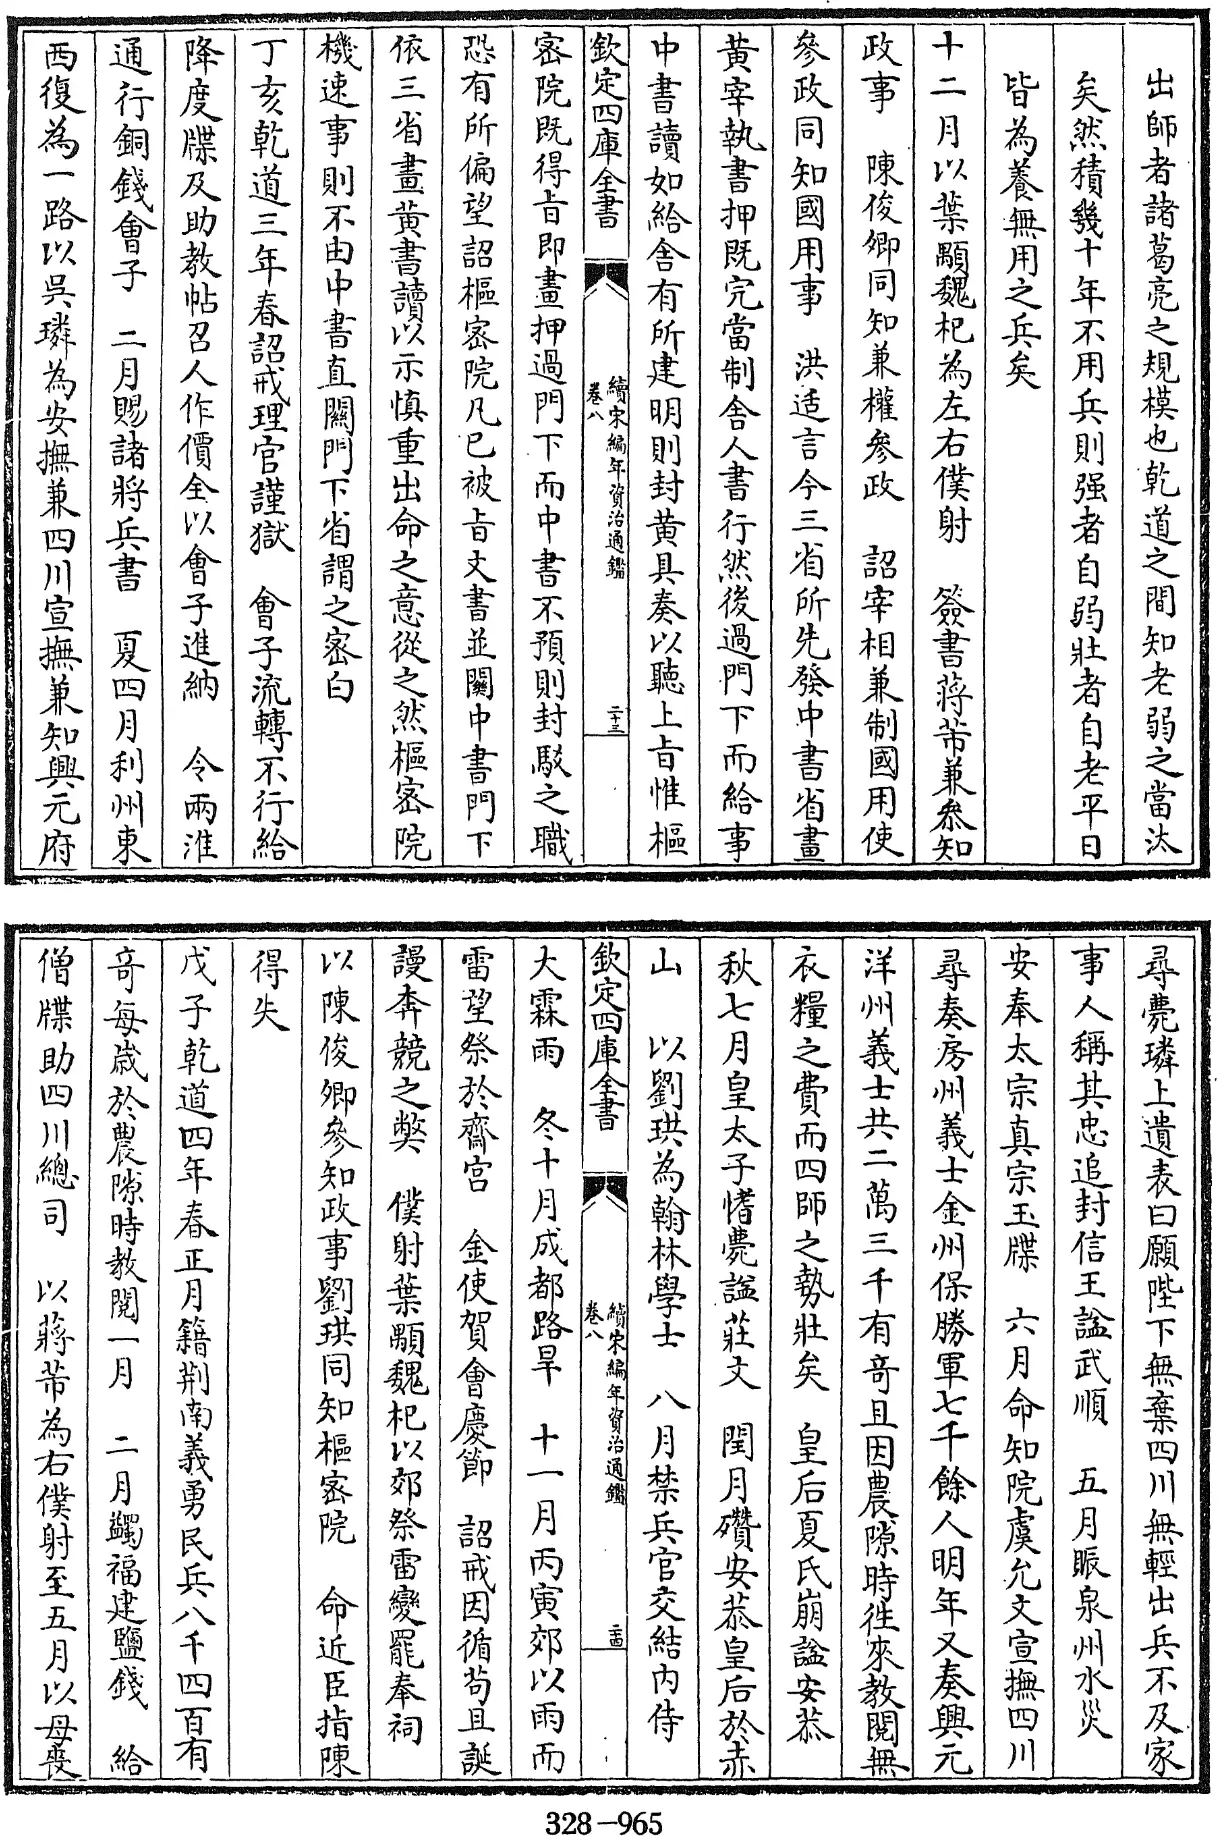 出師者諸葛亮之規模也乾道之間知老弱之當汰
矣然積幾十年不用兵則强者自弱壯者自老平日
皆為養無用之兵矣
十二月以葉顒魏杞為左右僕射　簽書蔣芾兼叅知
政事　陳俊卿同知兼權參政　詔宰相兼制國用使
參政同知國用事　洪适言今三省所先發中書省畫
黃宰執書押既完當制舍人書行然後過門下而給事
中書讀如給舍有所建明則封黃具奏以聽上旨惟樞
欽定四庫全書　續宋編年資治通鑑　卷八　二十三
密院既得旨即畫押過門下而中書不預則封駁之職
恐有所偏望詔樞密院凡已被旨文書並關中書門下
依三省畫黃書讀以示慎重出命之意從之然樞密院
機速事則不由中書直關門下省謂之密白
丁亥乾道三年春詔戒理官謹獄　會子流轉不行給
降度牒及助教帖召人作價全以會子進納　令兩淮
通行銅錢會子　二月賜諸將兵書　夏四月利州東
西復為一路以吳璘為安撫兼四川宣撫兼知興元府
尋薨璘上遺表曰願陛下無棄四川無輕出兵不及家
事人稱其忠追封信王諡武順　五月賑泉州水災
安奉太宗真宗玉牒　六月命知院虞允文宣撫四川
尋奏房州義士金州保勝軍七千餘人明年又奏興元
洋州義士共二萬三千有奇且因農隙時徃來教閱無
衣糧之費而四師之勢壯矣　皇后夏氏崩諡安恭
秋七月皇太子愭薨諡莊文　閏月攢安恭皇后於赤
山　以劉珙為翰林學士　八月禁兵官交結內侍
欽定四庫全書　續宋編年資治通鑑　卷八　二十四
大霖雨　冬十月成都路旱　十一月丙寅郊以雨而
雷望祭於齋宮　金使賀會慶節　詔戒因循苟且誕
謾奔競之獘　僕射葉顒魏杞以郊祭雷變罷奉祠
以陳俊卿參知政事劉珙同知樞密院　命近臣指陳
得失
戊子乾道四年春正月籍荆南義勇民兵八千四百有
奇每歲於農隙時教閱一月　二月蠲福建鹽錢　給
僧牒助四川總司　以蔣芾為右僕射至五月以母喪
328-965